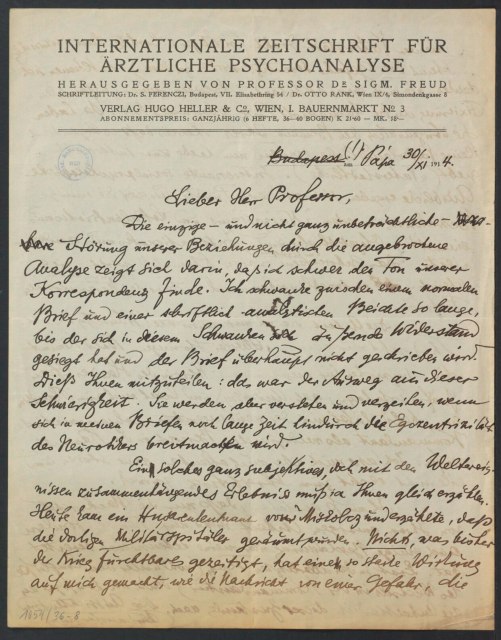 INTERNATIONALE ZEITSCHRIFT FÜR
ÄRZTLICHE PSYCHOANALYSE
HERAUSGEGEBEN VON PROFESSOR Dr SIGM. FREUD
SCHRIFTLEITUNG: Dr. S. FERENCZI, Budapest, VII. Elisabethring 54 / Dr. OTTO RANK, Wien IX/4, Simondenkgasse 8
VERLAG HUGO HELLER & Co, WIEN, I. BAUERNMARKT No 3
ABONNEMENTSPREIS: GANZJÄHRIG (6 HEFTE, 36—40 BOGEN) K 21·60 = MK. 18·—
Budapest (!) Pápa 30/XI 1914.
Lieber Herr Professor,
Die einzige – und nicht ganz unbeträchtliche –
Störung unserer Beziehungen durch die angebrochene
Analyse zeigt sich darin, daß ich schwer den Ton unserer
Korrespondenz finde. Ich schwanke zwischen einem normalen
Brief und einer schriftlich analytischen Beichte so lange,
bis der sich in diesem Schwanken äußernde Widerstand
gesiegt hat und der Brief überhaupt nicht geschrieben wird.
Dieß Ihnen mitzuteilen: das war der Ausweg aus dieser
Schwierigkeit. Sie werden aber verstehen und verzeihen, wenn
sich in meinen Briefen noch lange Zeit hindurch die Egozentrizität
des Neurotikers breitmachen wird.
Ein solches ganz subjektives, doch mit den Weltereig-
nissen zusammenhängendes Erlebnis muß ich Ihnen gleich erzählen.
Heute kam ein Husarenleutnant von Miskolcz und erzählte, daß
die dortigen Militärspitäler geräumt wurden. Nichts, was bisher
der Krieg Furchtbares gezeitigt, hat einen so starke Wirkung
auf mich gemacht, wie die Nachricht von einer Gefahr, die
1054/36-8